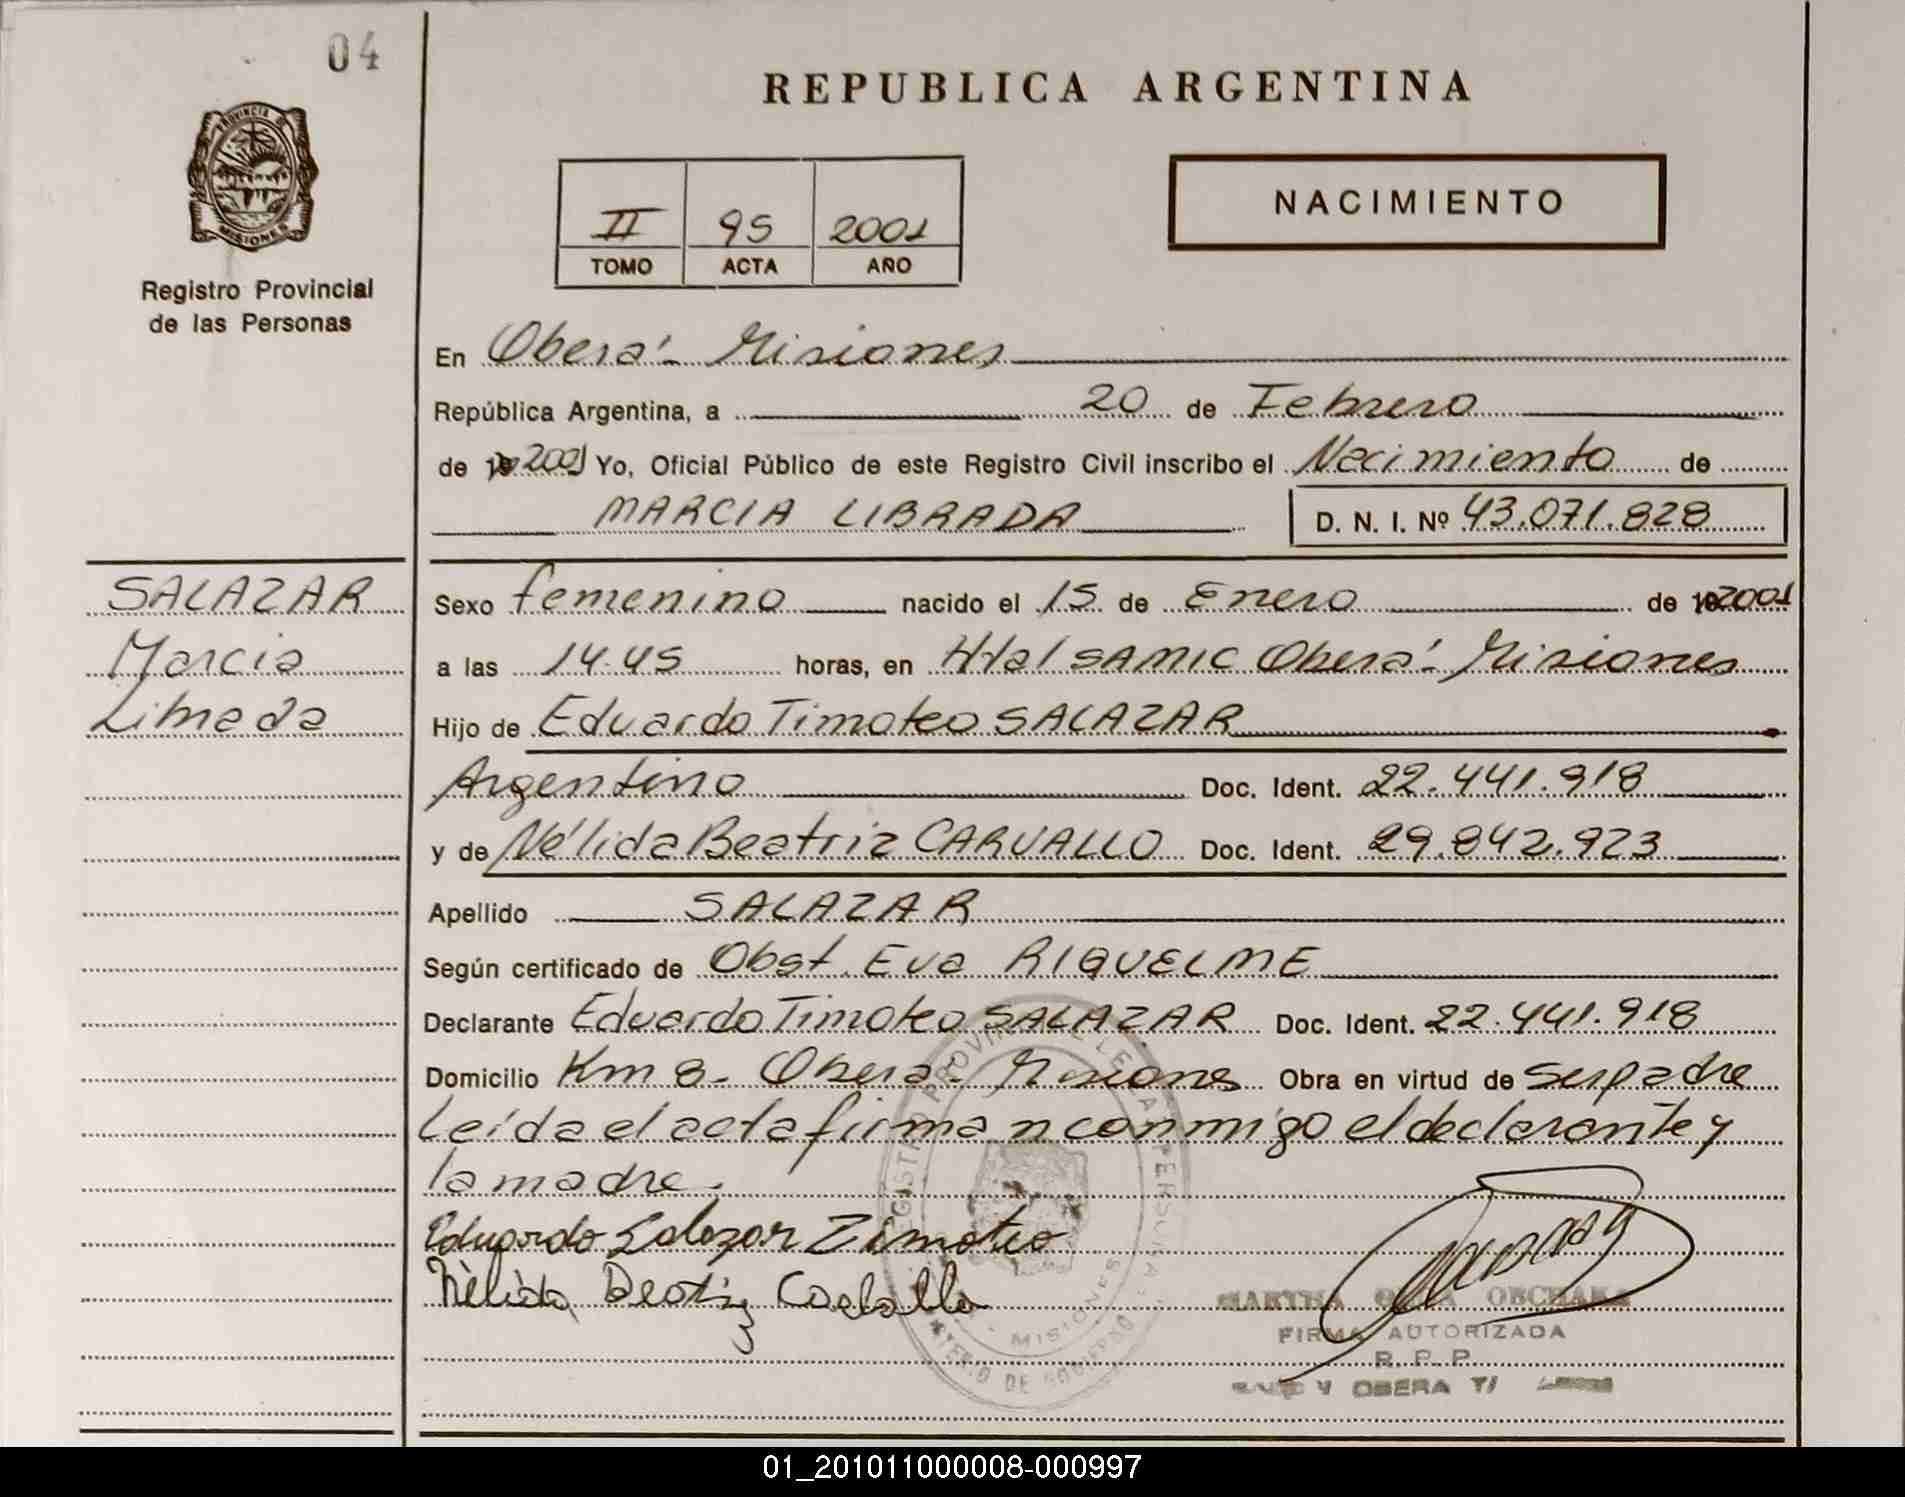 04
REPUBLICA ARGENTINA
PROVINCIA D
MISIONES
Registro Provincial
de las Personas
II 95 2001
TOMO ACTA AÑO
NACIMIENTO
En Oberá - Misiones
República Argentina, a 20 de Febrero
de 2001 Yo, Oficial Público de este Registro Civil inscribo el Nacimiento de
MARCIA LIBRADA D. N. I. Nº 43.071.828
SALAZAR
Marcia
Librada
Sexo femenino nacido el 15 de Enero de 2001
a las 14.45 horas, en Htal SAMIC Oberá - Misiones
Hijo de Eduardo Timoteo SALAZAR
Argentino Doc. Ident. 22.441.918
y de Nélida Beatriz CARVALLO Doc. Ident. 29.842.923
Apellido SALAZAR
Según certificado de Obst. Eva RIQUELME
Declarante Eduardo Timoteo SALAZAR Doc. Ident. 22.441.918
Domicilio Km 8 - Oberá - Misiones Obra en virtud de ser padre
Leída el acta firman conmigo el declarante y
la madre.
Eduardo Salazar Timoteo
Nélida Beatriz Carballo
MISIONES
DE GOBIERNO
MARTHA
FIRMA AUTORIZADA
R. P. P.
OBERA
01_201011000008-000997